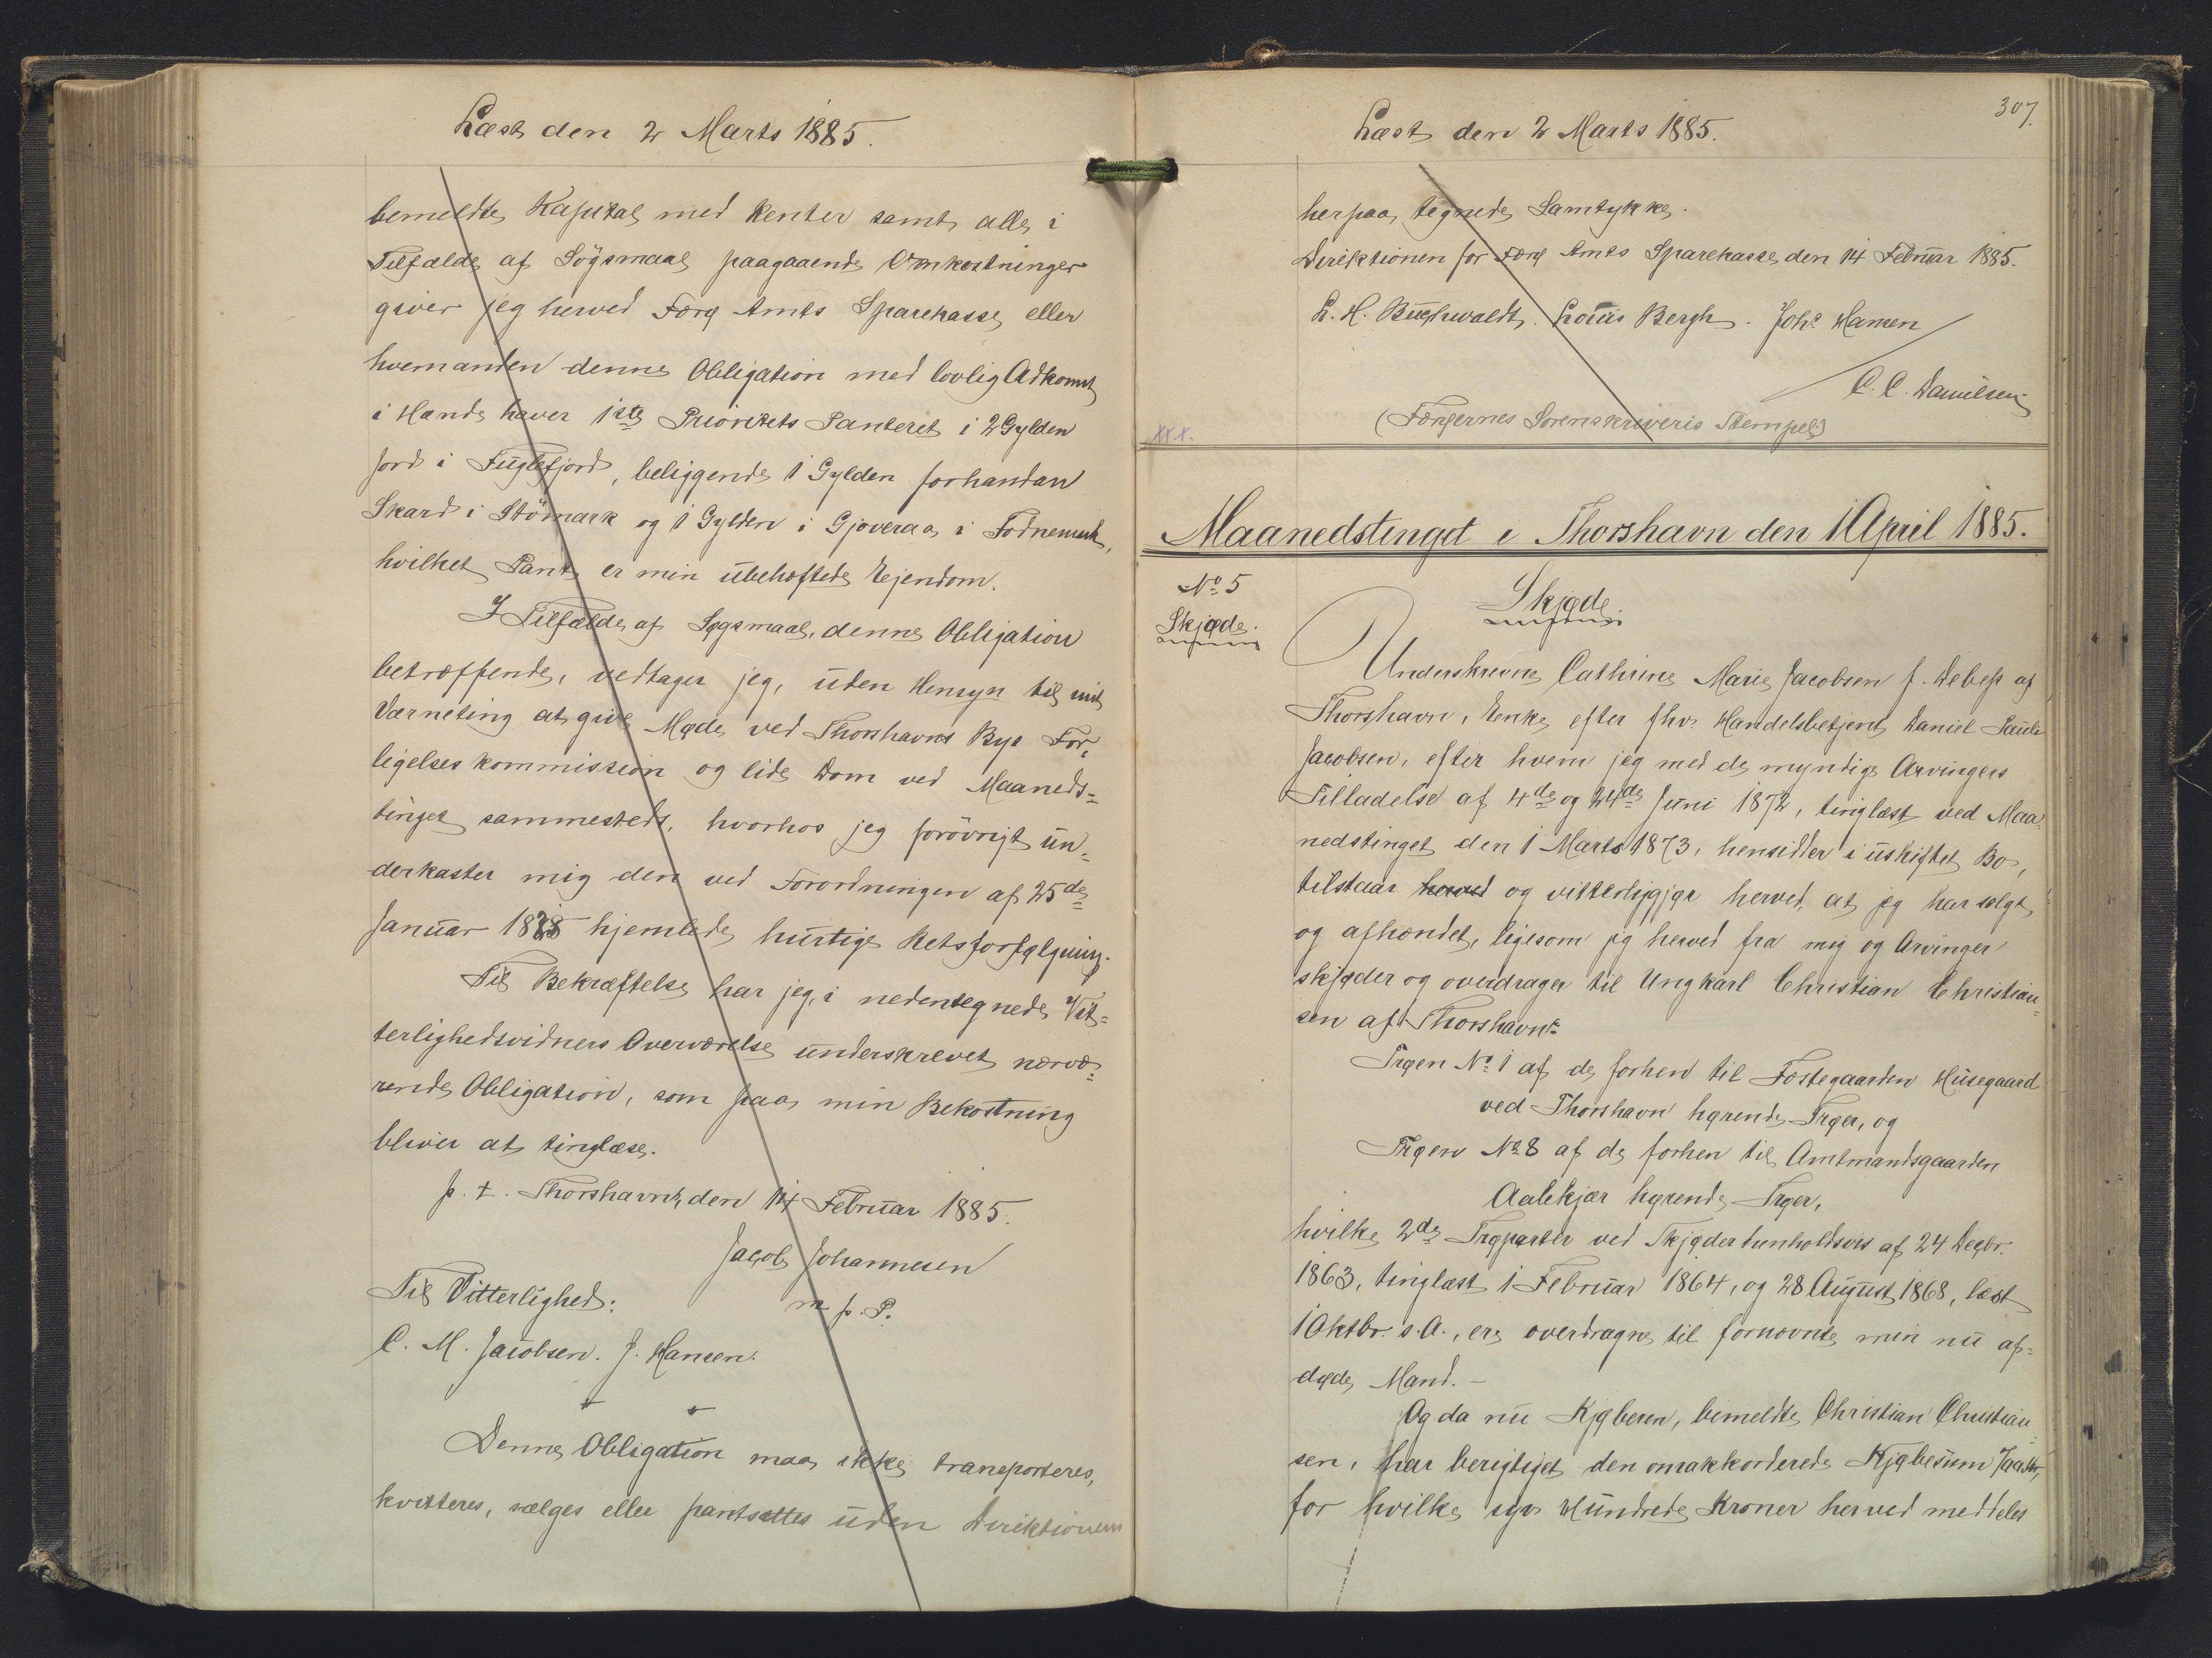 Læst den 2 Marts 1885.
bemeldte Kapital med Renter samt alle i
Tilfælde af Søgsmaal paagaaende Omkostninger
giver jeg herved Færø Amts Sparekasse eller
hvemanden denne Obligation med lovlig Adkomst
i Hænde haver 1ste Prioritets Panteret i 2 Gylden
Jord i Fuglefjord, beliggende 1 Gylden forhandan
Skard i Stömark og 1 Gylden i Gjoveraa i Fodnemark,
hvilket Pant er min ubehæftede Ejendom.
I Tilfælde af Søgsmaal, denne Obligation
betræffende, vedtager jeg, uden Hensyn til mit
Værneting at give Møde ved Thorshavns Byes For-
ligelseskommission og lide Dom ved Maaneds=
tinget sammesteds, hvorhos jeg forövrigt un=
derkaster mig den ved Forordningen af 25de
Januar 1828 hjemlede hurtige Retsforfølgning.
Til Bekræftelse har jeg, i nedentegnede Vit=
terlighedsvidners Overværelse underskrevet nærvæ=
rende Obligation, som paa min Bekostning
bliver at tinglæse.
p. t. Thorshavn, den 14 Februar 1885.
Jacob Johannesen
m. p. P.
Til Vitterlighed:
C. M. Jacobsen. J. Hansen.
Denne Obligation maa ikke transporteres,
kvitteres, sælges eller pantsættes uden Direktionens
307.
Læst den 2 Marts 1885.
herpaa tegnede Samtykke.
Direktionen for Færø Amts Sparekasse, den 14 Februar 1885.
L. H. Buchwaldt. Louis Bergh. Johs Hansen
C. C. Danielsen
(Færøernes Sorenskriveris Stempel)
XXX.
Maanedstinget i Thorshavn den 1 April 1885.
No 5
Skjøde.
Skjøde.
Underskrevne Cathrine Marie Jacobsen f. Debess af
Thorshavn, Enke efter fhv. Handelsbetjent Daniel Pauli
Jacobsen, efter hvem jeg med de myndige Arvingers
Tilladelse af 4de og 24de Juni 1872, tinglæst ved Maa=
nedstinget den 1 Marts 1873, hensidder i uskiftet Bo,
tilstaar herved og vitterliggjør herved, at jeg har solgt
og afhændet, ligesom jeg herved fra mig og Arvinger
skjøder og overdrager til Ungkarl Christian Christian=
sen af Thorshavn:
Trøen No 1 af de forhen til Fæstegaarden Husegaard
ved Thorshavn hørende Trøer, og
Trøen No 8 af de forhen til Amtmandsgaarden
Aalekjær hørende Trøer,
hvilke 2de Trøparter ved Skjøder henholdsvis af 24 Decbr.
1863, tinglæst 1 Februar 1864, og 28 August 1868, læst
1 Oktbr. s. A., ere overdragne til fornævnte min nu af=
døde Mand. –
Og da nu Kjøberen, bemeldte Christian Christian=
sen, har berigtiget den omakkorderede Kjøbesum 700 Kr,
for hvilke syv Hundrede Kroner herved meddeles